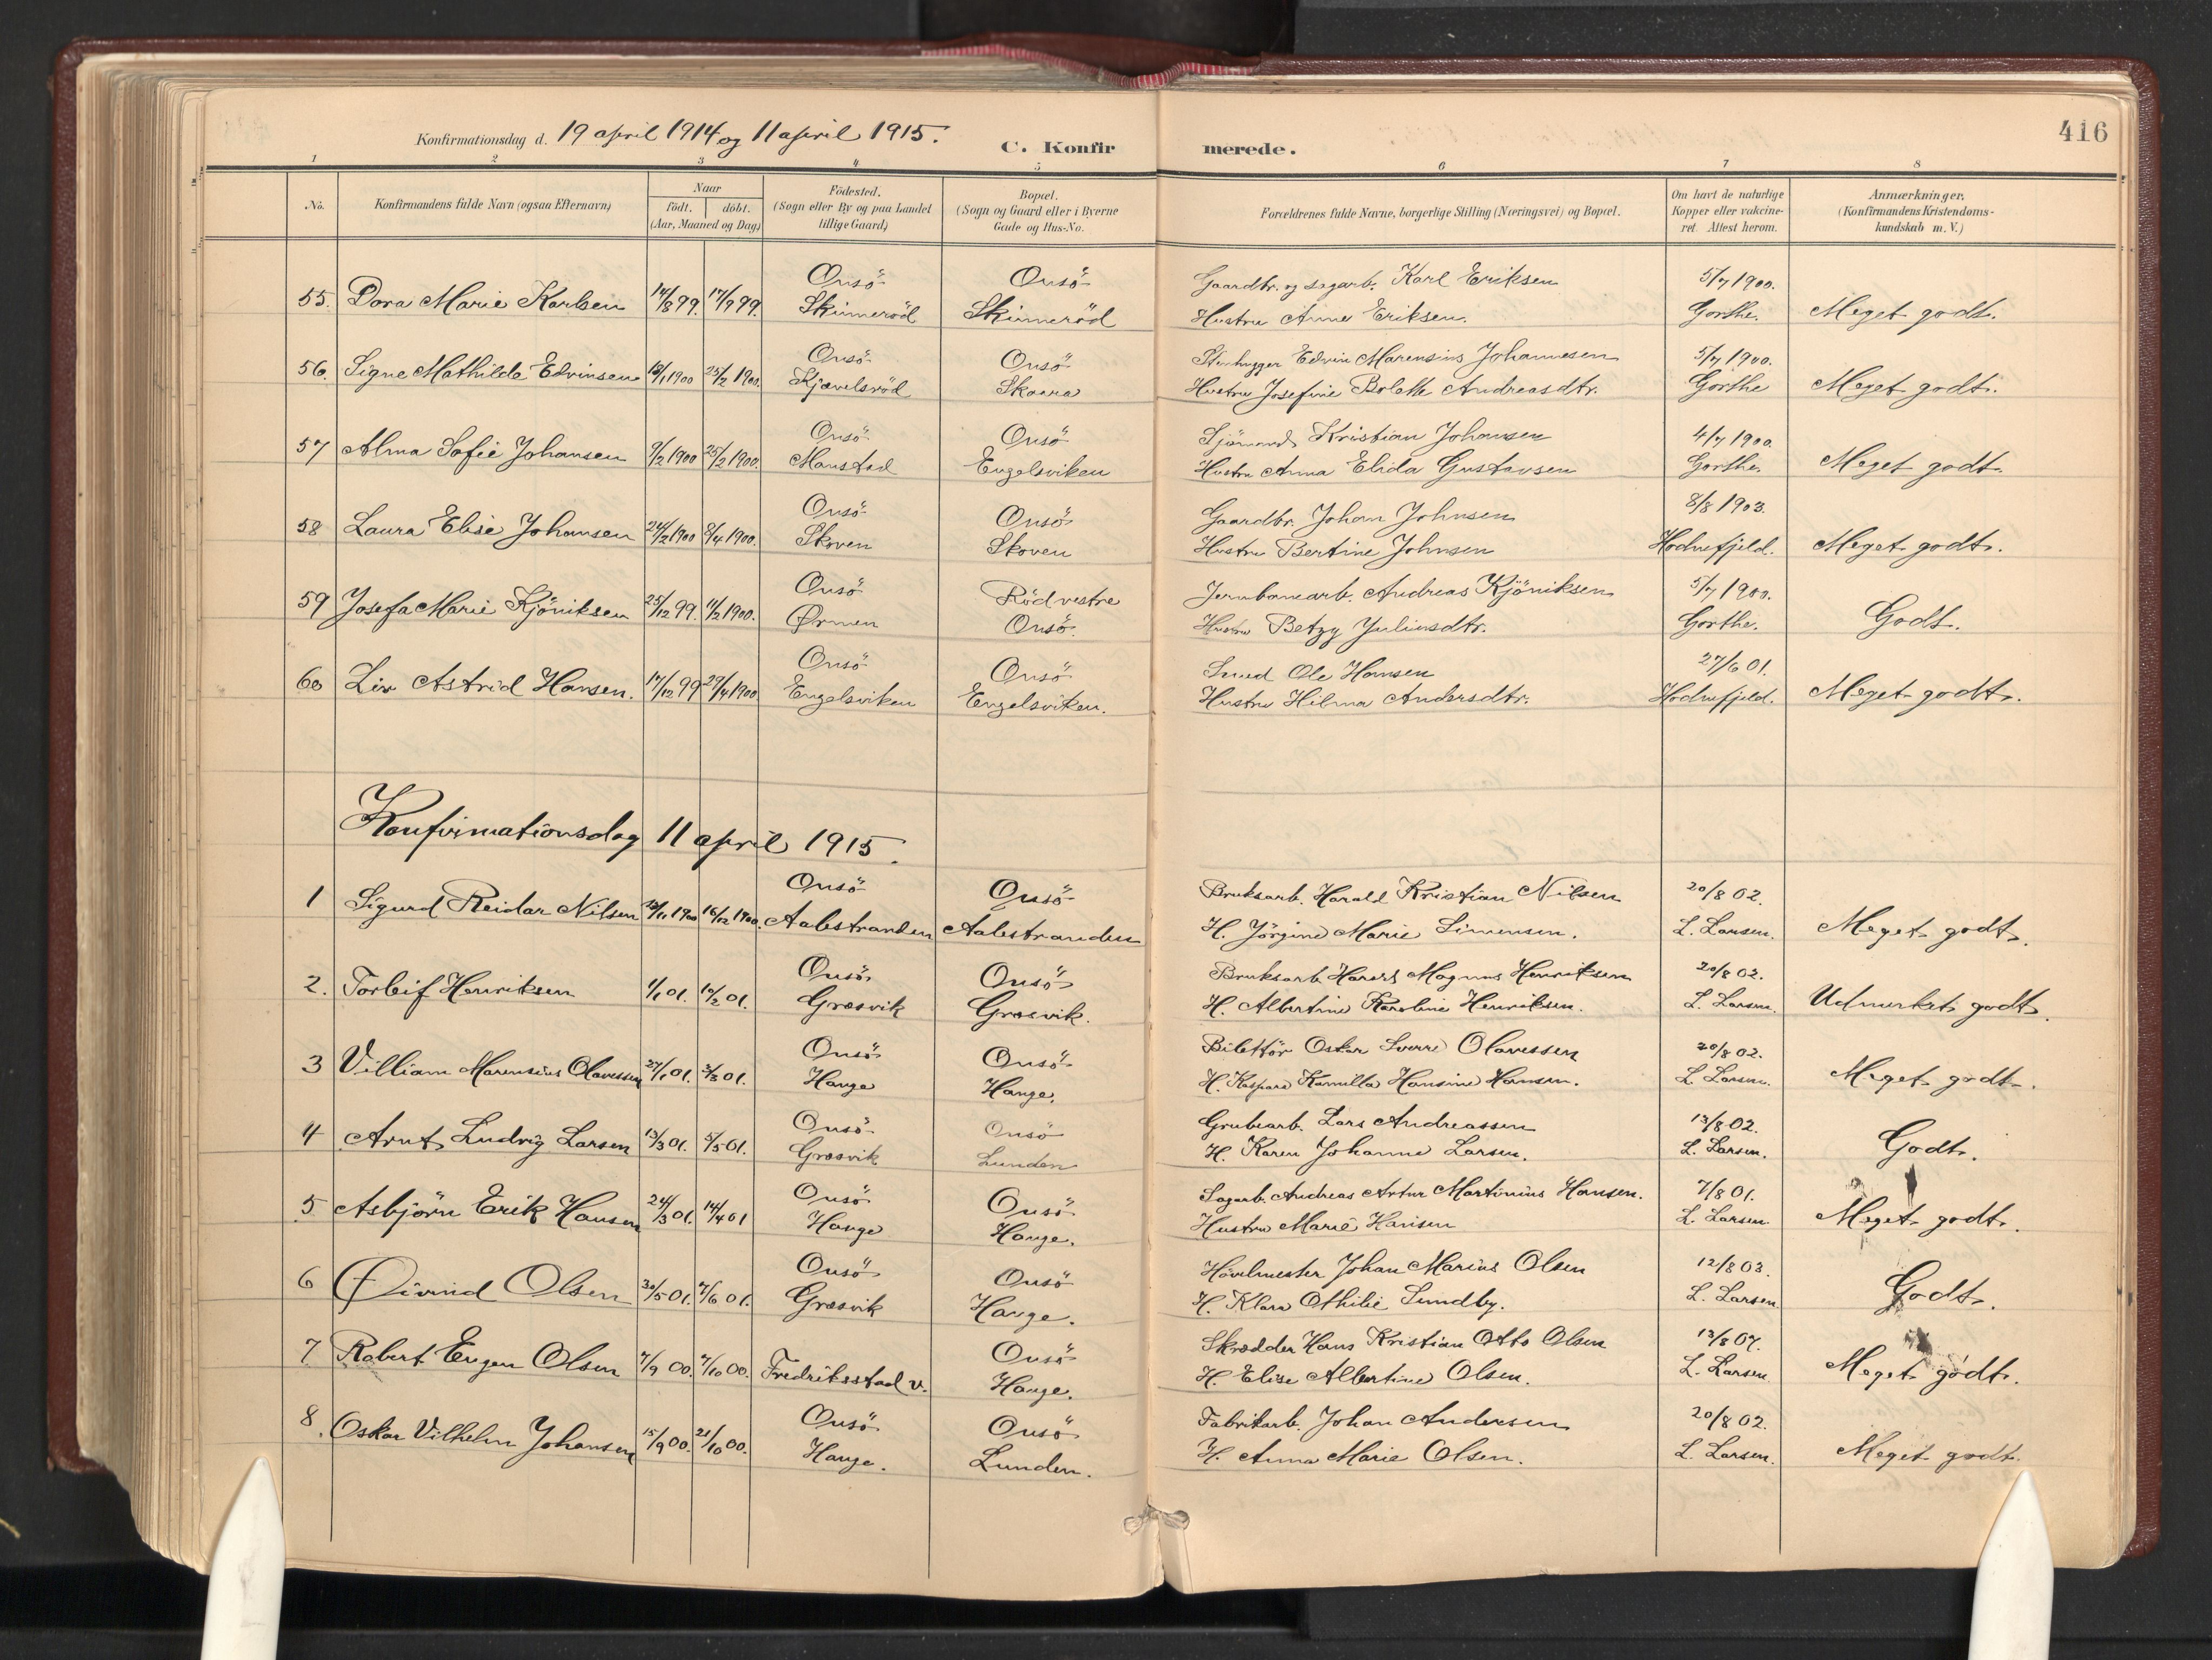 416
Konfirmationsdag d. 19 april 1914 og 11 april 1915.
C. Konfirmerede.
1 2 3 4 5 6 7 8
No. Konfirmandens fulde Navn (ogsaa Efternavn) Naar födt. döbt. (Aar, Maaned og Dag) Födested. (Sogn eller By og paa Landet tillige Gaard) Bopæl. (Sogn og Gaard eller i Byerne Gade og Hus-No. Forældrenes fulde Navne, borgerlige Stilling (Næringsvei) og Bopæl. Om havt de naturlige Kopper eller vakcineret. Attest herom. Anmærkninger. (Konfirmandens Kristendomskundskab m. V.)
Onsö Onsö Gaardbr. og sagarb. Karl Eriksen 5/7 1900.
55. Dora Marie Karlsen 14/8 99. 17/9 99. Skinneröd Skinneröd Hustru Anne Eriksen. Gorthe. Meget godt.
Onsö Onsö Stenhugger Edvin Marensius Johannesen 5/7 1900.
56. Signe Mathilde Edvinsen 18/1 1900 25/2 1900. Kjævelsröd Skaara Hustru Josefine Bolette Andreasdtr. Gorthe Meget godt.
Onsö Onsö Sjömand Kristian Johansen 4/7 1900.
57 Alma Sofie Johansen 9/2 1900 25/2 1900. Maustad Engelsviken Hustru Anna Elida Gustavsen Gorthe. Meget godt.
Onsö Onsö Gaardbr. Johan Johnsen 8/8 1903.
58 Laura Elise Johansen 24/2 1900 8/4 1900. Skoven Skoven Hustru Bertine Johnsen Hodnefjeld. Meget godt.
Onsö Röd vestre Jernbanearb. Andreas Kjöniksen 5/7 1900.
59 Josefa Marie Kjöniksen 25/12 99. 11/2 1900. Ørmen Onsö. Hustru Betzy Juliusdtr. Gorthe. Godt.
Onsö Onsö Smed Ole Hansen 27/6 01.
60 Liv Astrid Hansen. 17/12 99 29/4 1900 Engelsviken Engelsviken. Hustru Hilma Andersdtr. Hodnefjeld. Meget godt.
Konfirmationsdag 11 april 1915.
Onsö Onsö Bruksarb. Harald Kristian Nilsen 20/8 02.
1 Sigurd Reidar Nilsen /11 1900 16/12 1900. Aalestranden Aalestranden H. Jörgine Marie Simensen. L. Larsen. Meget godt.
Onsö Onsö Bruksarb. Magnus Henriksen 20/8 02.
2. Torleif Henriksen 1/1 01. 10/2 01. Græsvik Græsvik. H. Albertine Karoline Henriksen. L. Larsen. Udmerket godt.
Onsö Onsö Billettör Oskar Sverre Olavessen 20/8 02.
3 Villiam Marensius Olavessen 27/1 01. 3/3 01. Hauge Hauge. H. Kaspara Kamilla Hansine Hansen. L. Larsen. Meget godt.
Onsö Onsö Grubearb. Lars Andreassen 13/8 02.
4 Arnt Ludvig Larsen 13/3 01. 5/5 01. Græsvik Lunden H. Karen Johanne Larsen. L. Larsen. Godt.
Onsö Onsö Sagarb. Andreas Artur Martinius Hansen. 7/8 01.
5 Asbjörn Erik Hansen 24/3 01. 14/4 01 Hauge Hauge. Hustru Marie Hansen L. Larsen. Meget godt.
Onsö Onsö Hövelmester Johan Marius Olsen 12/8 03.
6 Øivind Olsen 30/5 01. 7/6 01. Græsvik Hauge. H. Klara Othilie Sundby. L. Larsen. Godt.
Onsö Skrædder Hans Kristian Otto Olsen 13/8 07.
7 Robert Eugen Olsen 7/9 00. 7/10 00. Fredriksstad v. Hauge. H. Elise Albertine Olsen. L. Larsen. Meget godt.
Onsö Onsö Fabrikarb. Johan Andersen 20/8 02.
8. Oskar Vilhelm Johansen 15/9 00. 21/10 00. Hauge. Lunden. H. Anna Marie Olsen. L. Larsen. Meget godt.